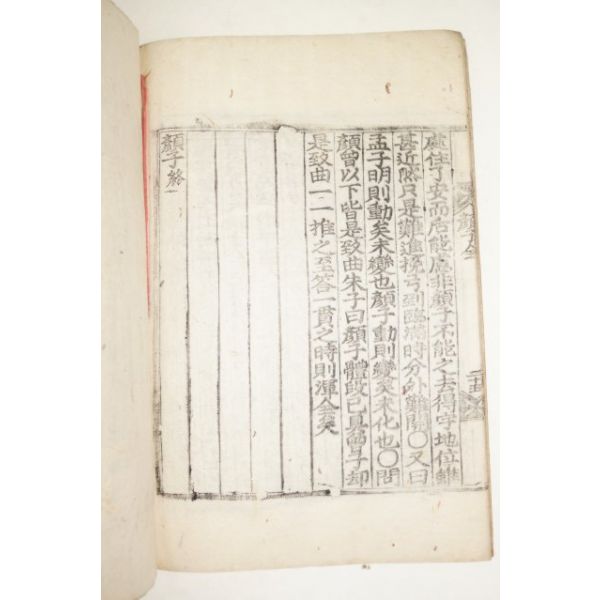 處住了安而后能慮非顔子不能之去得字地位雖
甚近然只是難進挽弓到臨滿時分外難開〇又曰
孟子明則動矣未變也顔子動則變矣未化也〇問
顔曾以下皆是致曲朱子曰顔子體段已具曾子却
是致曲一二推之至答一貫之時則渾全矣
顔子終